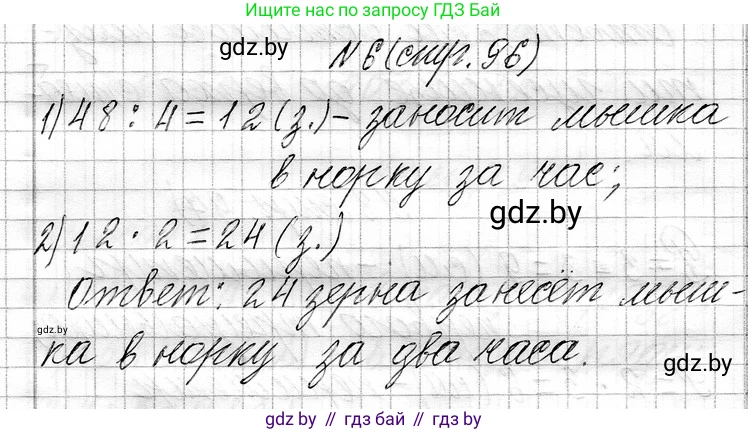 Ищите нас по запросу ГДЗ Бай
gdz.by
№ 6 (стр. 96)
1) 48 : 4 = 12 (з.) – заносит мышка
в норку за час;
gdz.by
2) 12 · 2 = 24 (з.)
Ответ: 24 зерна занесёт мыш-
gdz.by
ка в норку за два часа.
gdz.by
gdz.by // гдз бай // gdz.by